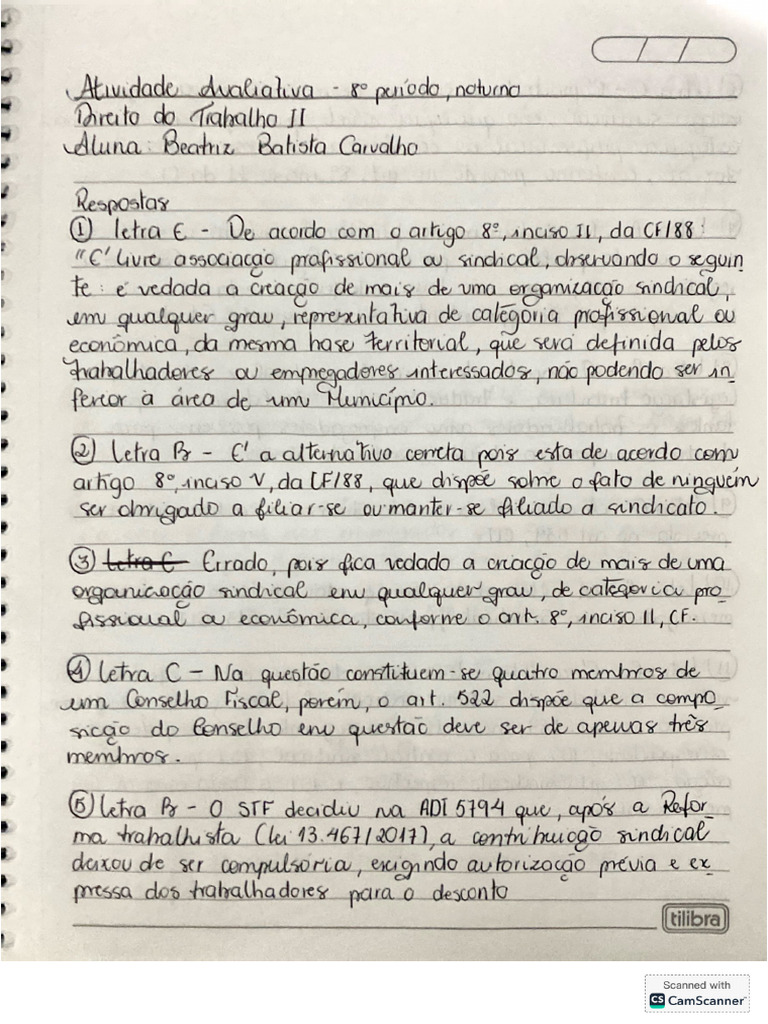 Atividade Avaliativa - 8º período, noturno
Direito do Trabalho II
Aluna: Beatriz Batista Carvalho
Respostas
① letra E - De acordo com o artigo 8º, inciso II, da CF/88:
"É livre associação profissional ou sindical, observando o seguin
te: é vedada a criação de mais de uma organização sindical,
em qualquer grau, representativa de categoria profissional ou
econômica, da mesma base territorial, que será definida pelos
trabalhadores ou empregadores interessados, não podendo ser in_
ferior à área de um Município.
② Letra B - É a alternativa correta pois esta de acordo com
artigo 8º, inciso V, da CF/88, que dispõe sobre o fato de ninguém
ser obrigado a filiar-se ou manter-se filiado a sindicato.
③ Letra C Errado, pois fica vedado a criação de mais de uma
organização sindical em qualquer grau, de categoria pro_
fissional a econômica, conforme o art. 8º, inciso II, CF.
④ Letra C - Na questão constituem-se quatro membros de
um Conselho Fiscal, porém, o art. 522 dispõe que a compo_
sicção do Conselho em questão deve ser de apenas três
membros.
⑤ Letra B - O STF decidiu na ADI 5794 que, após a Refor_
ma trabalhista (lei 13.467/2017), a contribuição sindical
deixou de ser compulsória, exigindo autorização prévia e ex_
pressa dos trabalhadores para o desconto
tilibra
Scanned with
CS CamScanner